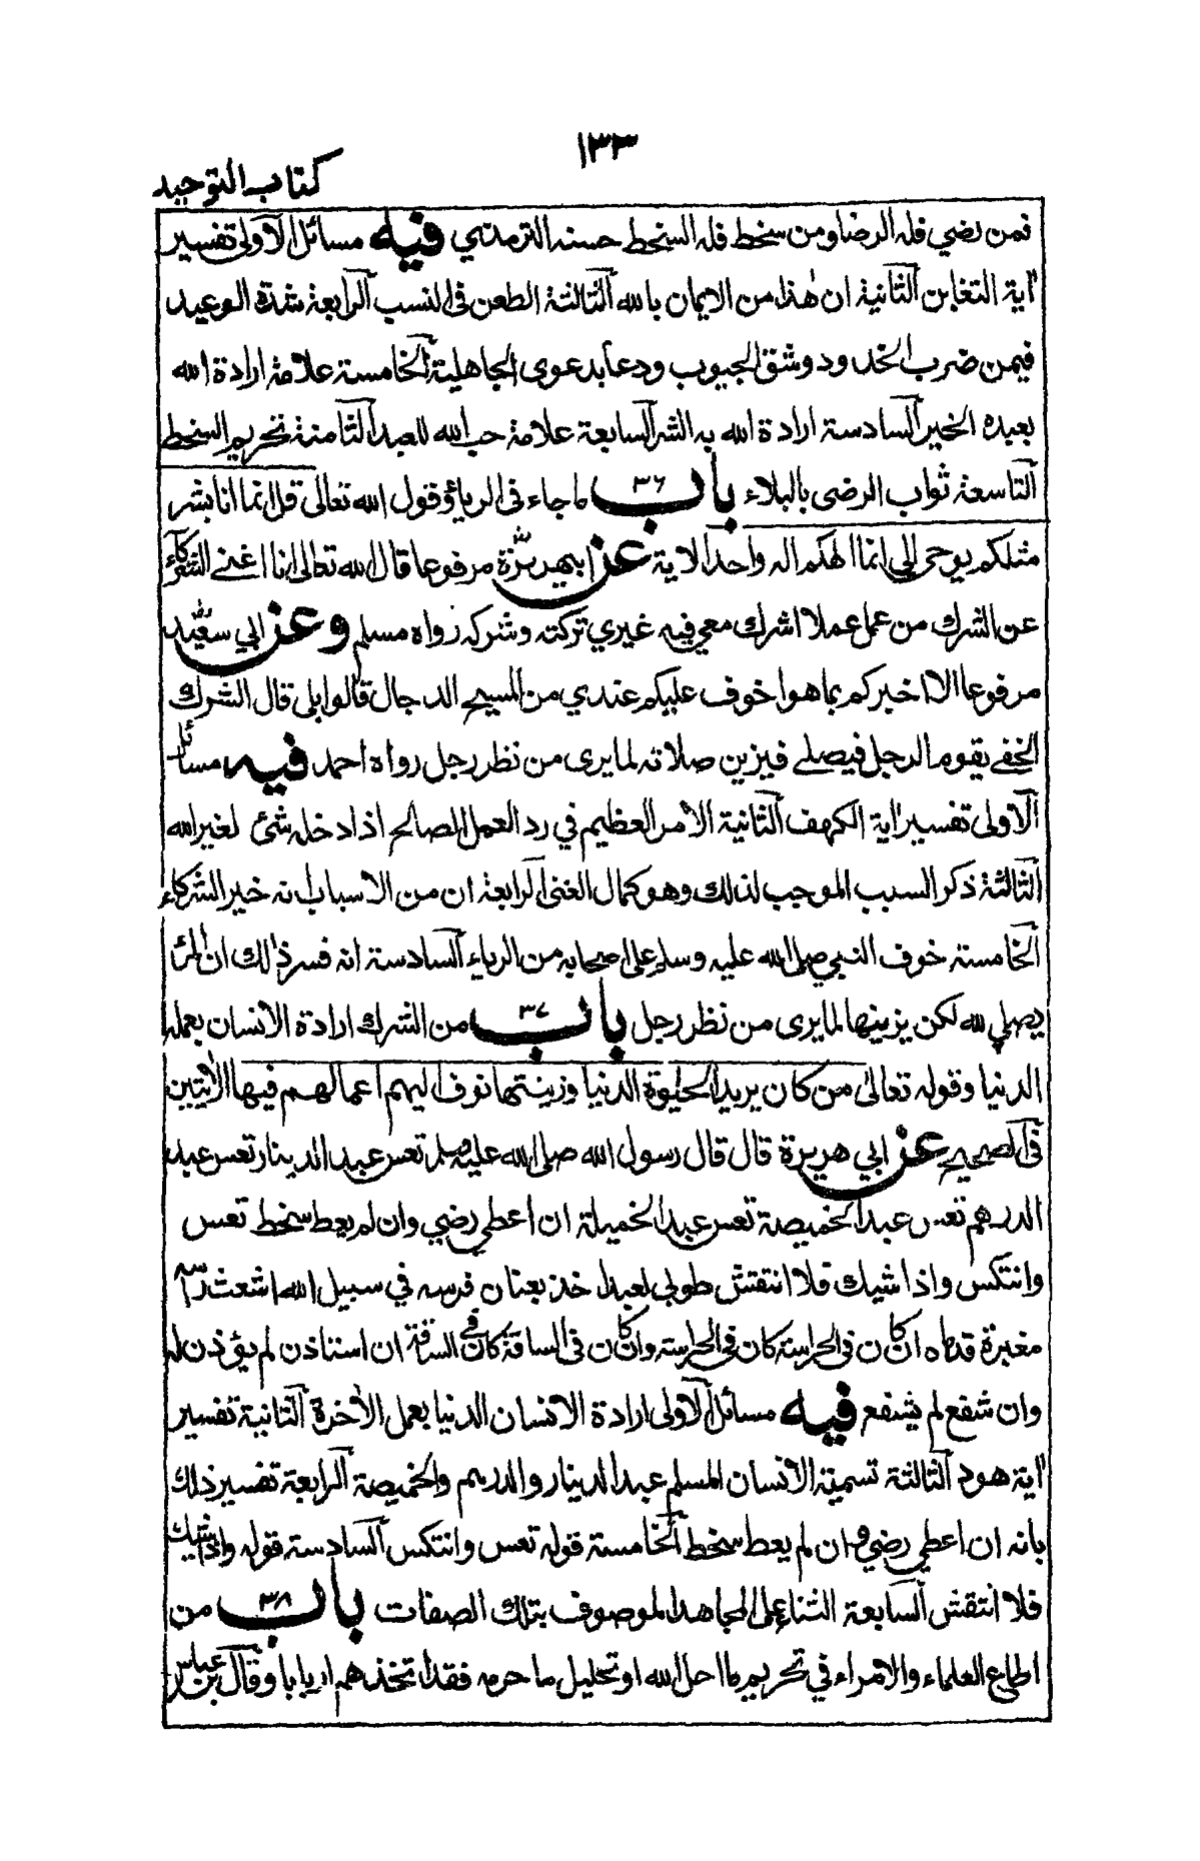 ١٣٣
كتاب التوحيد
فمن رضي فله الرضا ومن سخط فله السخط حسنه الترمذي فيه مسائل الآولى تفسير
اية التغابن آلثانية ان هذا من الايمان بالله آلثالثة الطعن فى النسب آلرابعة شدة الوعيد
فيمن ضرب الخدود وشق الجيوب ودعا بدعوى الجاهلية آلخامسة علامة ارادة الله
بعبده الخير آلسادسة ارادة الله به الشر آلسابعة علامة حب الله للعبد آلثامنة تحريم السخط
آلتاسعة ثواب الرضى بالبلاء باب ٣٦ ما جاء فى الرياؤ وقول الله تعالى قل انما انا بشر
مثلكم يوحى الي انما الهكم اله واحد الاية عن ابي هريرة مرفوعا قال الله تعالى انا اغنى الشركاء
عن الشرك من عمل عملا اشرك معي فيه غيري تركته وشركه رواه مسلم وعن ابي سعيد
مرفوعا الا اخبركم بما هوا خوف عليكم عندي من المسيح الدجال قالوا بلى قال الشرك
الخفي يقوم الرجل فيصلے فيزين صلاته لما يرى من نظر رجل رواه احمد فيه مسائل
الآولى تفسير اية الكهف آلثانية الامر العظيم في رد العمل الصالح اذا دخله شئ لغير الله
آلثالثة ذكر السبب الموجب لذلك وهو كمال الغنى آلرابعة ان من الاسباب انه خير الشركاء
آلخامسة خوف النبي صلى الله عليه وسلم على اصحابه من الرياء آلسادسة انه فسر ذلك ان المرأ
يصلي لله لكن يزينها لما يرى من نظر رجل باب ٣٧ من الشرك ارادة الانسان بعمله
الدنيا وقوله تعالى من كان يريد الحيوة الدنيا وزينتها نوف اليهم اعمالهم فيها الايتين
فى الصحيح عن ابي هريرة قال قال رسول الله صلى الله عليه وسلم تعس عبد الدينار تعس عبد
الدرهم تعس عبد الخميصة تعس عبد الخميلة ان اعطي رضي وان لم يعط سخط تعس
وانتكس واذا شيك فلا انتقش طوبى لعبد اخذ بعنان فرسه في سبيل الله اشعث رأسه
مغبرة قدماه ان كان فى الحراسة كان فى الحراسة وان كان فى الساقة كان فى الساقة ان استاذن لم يؤذن له
وان شفع لم يشفع فيه مسائل الآولى ارادة الانسان الدنيا بعمل الاخرة آلثانية تفسير
اية هود آلثالثة تسمية الانسان المسلم عبد الدينار والدرهم والخميصة آلرابعة تفسير ذلك
بانه ان اعطي رضي وان لم يعط سخط آلخامسة قوله تعس وانتكس آلسادسة قوله واذا شيك
فلا انتقش آلسابعة الثناء على المجاهد الموصوف بتلك الصفات باب ٣٨ من
اطاع العلماء والامراء في تحريم ما احل الله او تحليل ما حرمه فقد اتخذهم اربابا وقال ابن عباس